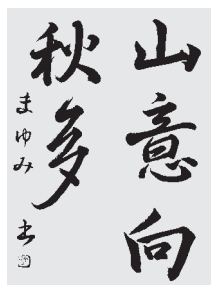 山意向
秋多
まゆみ書